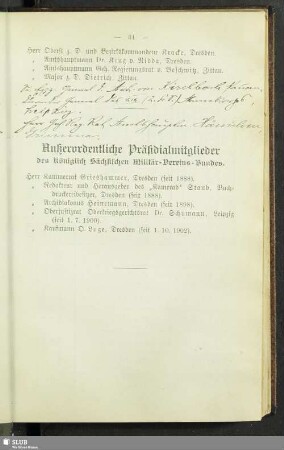 — 91 —
Herr Oberst z. D. und Bezirkskommandeur Kracke, Dresden.
„ Amtshauptmann Dr. Krug v. Nidda, Dresden.
„ Amtshauptmann Geh. Regierungsrat v. Beschwitz, Zittau.
„ Major z. D. Dietrich, Zittau.
Außerordentliche Präsidialmitglieder
des Königlich Sächsischen Militär-Vereins-Bundes.
Herr Kammerrat Grieshammer, Dresden (seit 1888).
„ Redakteur und Herausgeber des „Kamerad“ Stand, Buch-
druckereibesitzer, Dresden (seit 1888).
„ Archidiakonus Heinemann, Dresden (seit 1898).
„ Oberjustizrat Oberkriegsgerichtsrat Dr. Schumann, Leipzig
(seit 1. 7. 1909).
„ Kaufmann O. Lage, Dresden (seit 1. 10. 1902).
SLUB
Wir führen Wissen.